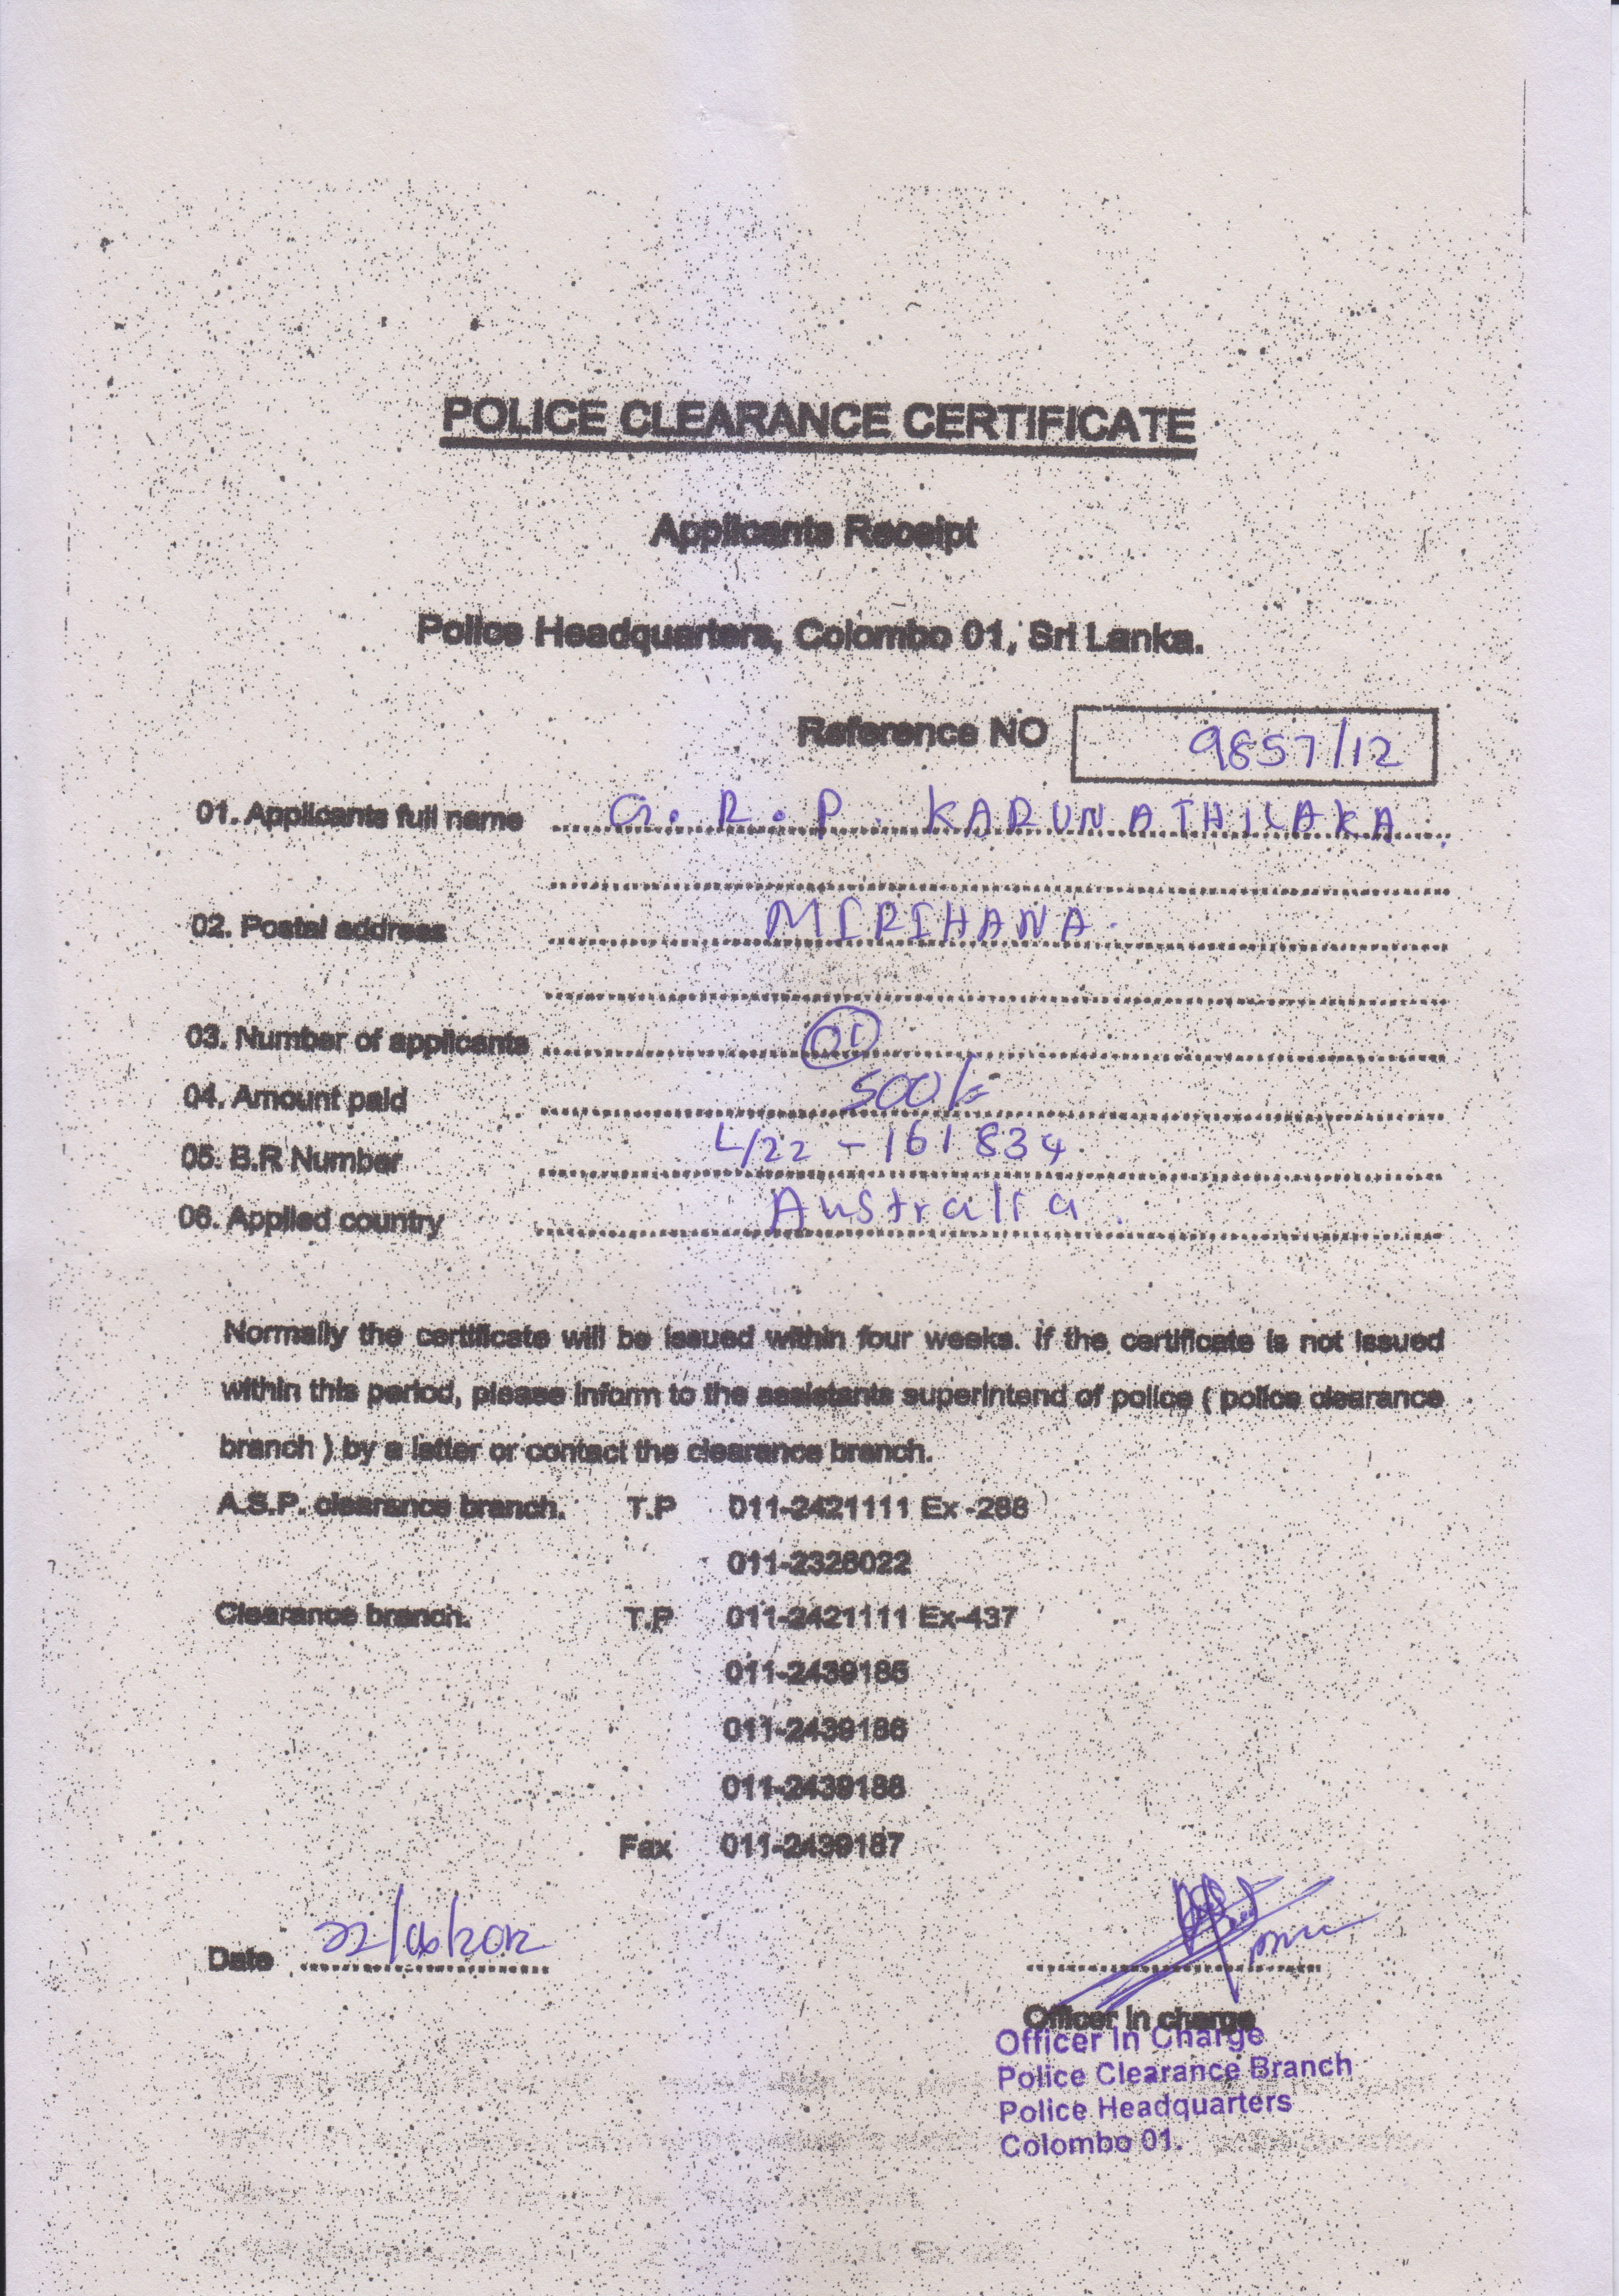 POLICE CLEARANCE CERTIFICATE
Applicants Receipt
Police Headquarters, Colombo 01, Sri Lanka.
Reference NO 9857/12
01. Applicants full name G. R. P. KARUNATHILAKA
02. Postal address MIRIHANA.
03. Number of applicants 01
04. Amount paid 500/=
05. B.R Number L/22 - 161834
06. Applied country Australia.
Normally the certificate will be issued within four weeks. if the certificate is not issued
within this period, please inform to the assistants superintend of police ( police clearance
branch ) by a letter or contact the clearance branch.
A.S.P. clearance branch. T.P 011-2421111 Ex -288
011-2326022
Clearance branch. T.P 011-2421111 Ex-437
011-2439185
011-2439186
011-2439188
Fax 011-2439187
Date 22/06/2012
Officer in charge
Officer In Charge
Police Clearance Branch
Police Headquarters
Colombo 01.